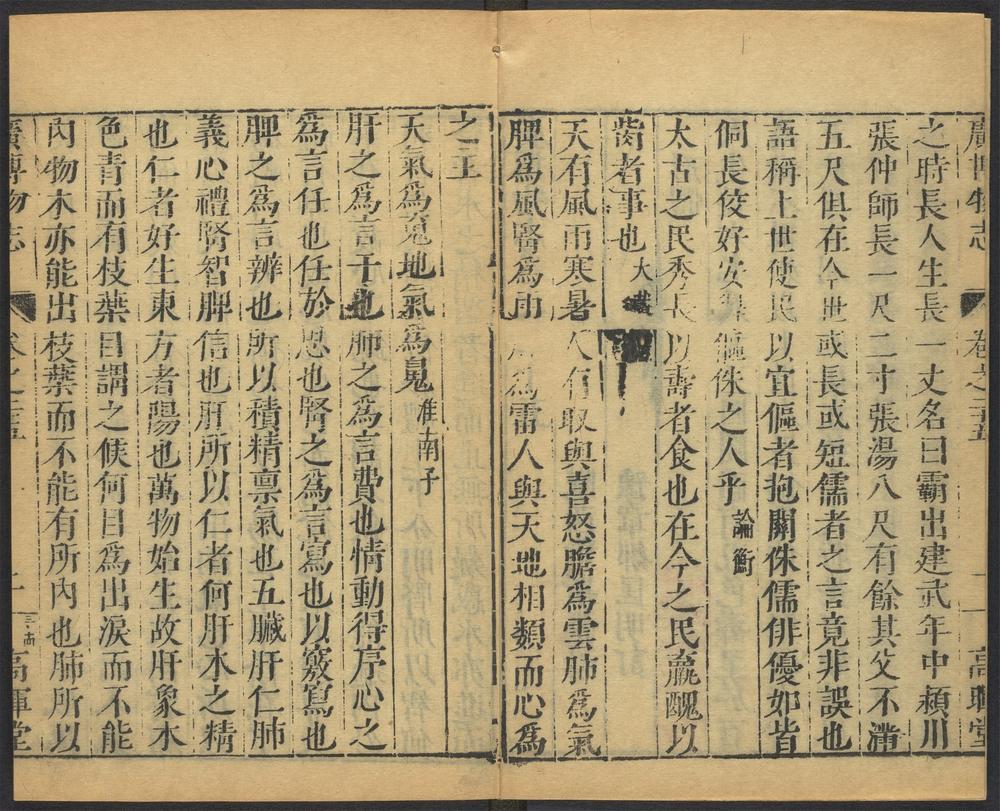 廣博物志 卷之二五 一 高暉堂
之時長人生長一丈名曰霸出建武年中潁川
張仲師長一尺二寸張湯八尺有餘其父不滿
五尺俱在今世或長或短儒者之言竟非誤也
語稱上世使民以宜傴者抱關侏儒俳優如皆
侗長佼好安得傴侏之人乎論衡
太古之民秀長以壽者食也在今之民羸醜以
胔者事也大戴
天有風雨寒暑人有取與喜怒膽爲雲肺爲氣
脾爲風腎爲雨 爲雷人與天地相類而心爲
之主
天氣爲䰟地氣爲鬼淮南子
肝之爲言干也肺之爲言費也情動得序心之
爲言任也任於思也腎之爲言寫也以竅寫也
脾之爲言辨也所以積精禀氣也五臟肝仁肺
義心禮腎智脾信也肝所以仁者何肝木之精
也仁者好生東方者陽也萬物始生故肝象木
色青而有枝葉目謂之候何目爲出淚而不能
內物木亦能出枝葉而不能有所內也肺所以
廣博物志 高暉堂